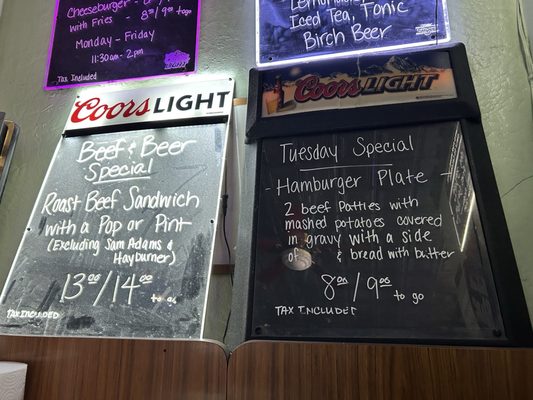 Cheeseburger
with Fries - 8⁰⁰/9⁰⁰ togo
Monday - Friday
11:30am - 2pm
Tax Included
Iced Tea, Tonic
Birch Beer
Coors LIGHT
Beef & Beer
Special
Roast Beef Sandwich
with a Pop or Pint
(Excluding Sam Adams &
Hayburner)
13⁰⁰/14⁰⁰ to go
TAX INCLUDED
Coors LIGHT
Tuesday Special
- Hamburger Plate -
2 beef Patties with
mashed potatoes covered
in gravy with a side
of & bread with butter
8⁰⁰/9⁰⁰ to go
TAX INCLUDED